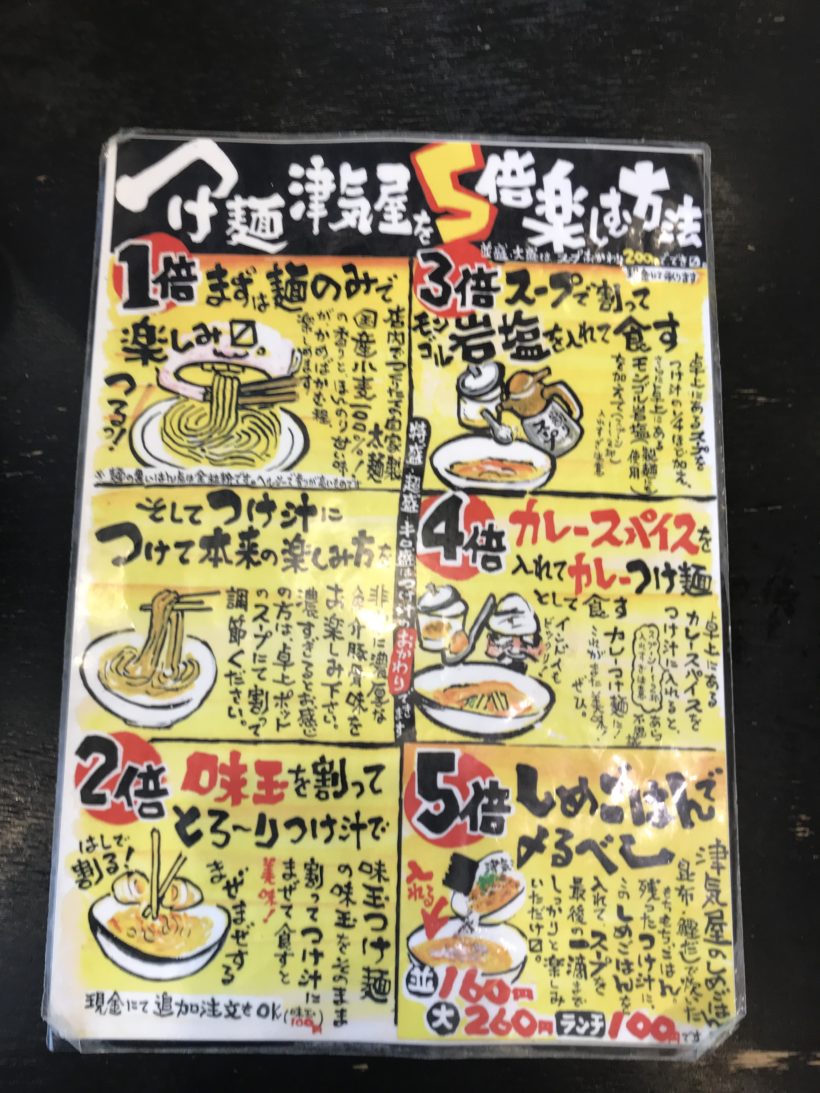 つけ麺 津気屋を5倍楽しむ方法
並盛、大盛は、スープおかわり200円でできます
現金にて承ります
1倍 まずは麺のみで
楽しみ〼。
つるっ!
店内でつくった自家製
太麺
国産小麦100%!
の香りとほんのり甘い味
が、かめばかむ程
楽しめます。
そしてつけ汁に
つけて本来の楽しみ方を
非常に濃厚な
魚介豚骨味を
お楽しみ下さい。
濃すぎると感じ
の方は、卓上ポット
のスープにて割って
調節ください。
2倍 味玉を割って
とろ〜りつけ汁で
はしで
割る!
味玉つけ麺
の味玉をそのまま
割ってつけ汁に
まぜて食すと
美味!
まぜまぜする
現金にて追加注文もOK(味玉100円)
特盛・超盛・キロ盛はつけ汁がおかわりできます
3倍 スープで割って
モンゴル岩塩を入れて食す
卓上にあるスープを
つけ汁に少々加え、
さらに卓上にある
モンゴル岩塩(製麺にも使用)
を加えて
スープ
4倍 カレースパイスを
入れてカレーつけ麺
として食す
卓上にある
カレースパイスを
つけ汁に入れると、
あら不思議
カレーつけ麺に!
これがまた美味!
ぜひ。
インド人も
ビックリ!
5倍 しめごはんで
〆るべし
入れる
津気屋のしめごはん
昆布・鰹だしで炊いた
もちもちごはん。
残ったつけ汁に、
このしめごはんを
入れてスープを
最後の一滴まで
しっかりと楽しみ
いただけ〼。
並160円
大260円 ランチ100円です